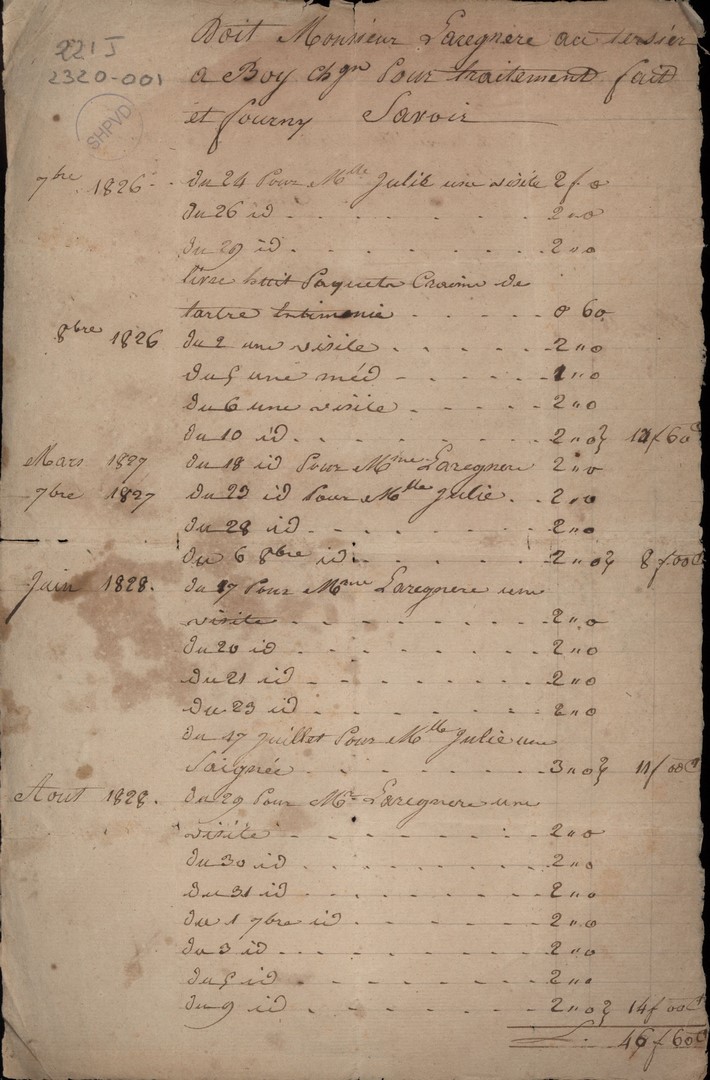 221 J
2320-001
SHPVD
Doit Monsieur Laregnere au
a Boy chgn Pour traitement fait
et fourny Savoir
7bre 1826 - du 24 Pour Mlle Julie une visite 2 f 0
du 26 id . . . . . . 2 " 0
du 29 id . . . . . . 2 " 0
livre huit Paquets Craime de
tartre . . . . . 0 60
8bre 1826 du 2 une visite . . . . . 2 " 0
du 5 une méd - . . . . 1 " 0
du 6 une visite . . . . . 2 " 0
du 10 id . . . . . . 2 " 0 } 14 f 60 C
Mars 1827 du 18 id Pour Mme Laregnere 2 " 0
7bre 1827 du 23 id Pour Mlle Julie . . 2 " 0
du 28 id . . . . . . 2 " 0
du 6 8bre id . . . . . 2 " 0 } 8 f 00 C
Juin 1828. du 17 Pour Mme Laregnere une
visite . . . . . . 2 " 0
du 20 id . . . . . . 2 " 0
du 21 id . . . . . . 2 " 0
du 23 id . . . . . . 2 " 0
du 17 Juillet Pour Mlle Julie une
Saignée . . . . . . 3 " 0 } 11 f 00 C
Aout 1828. du 29 Pour Mr Laregnere une
visite . . . . . . 2 " 0
du 30 id . . . . . . 2 " 0
du 31 id . . . . . . 2 " 0
du 1 7bre id . . . . . 2 " 0
du 3 id . . . . . . 2 " 0
du 5 id . . . . . . 2 " 0
du 9 id . . . . . . 2 " 0 } 14 f 00 C
46 f 60 C